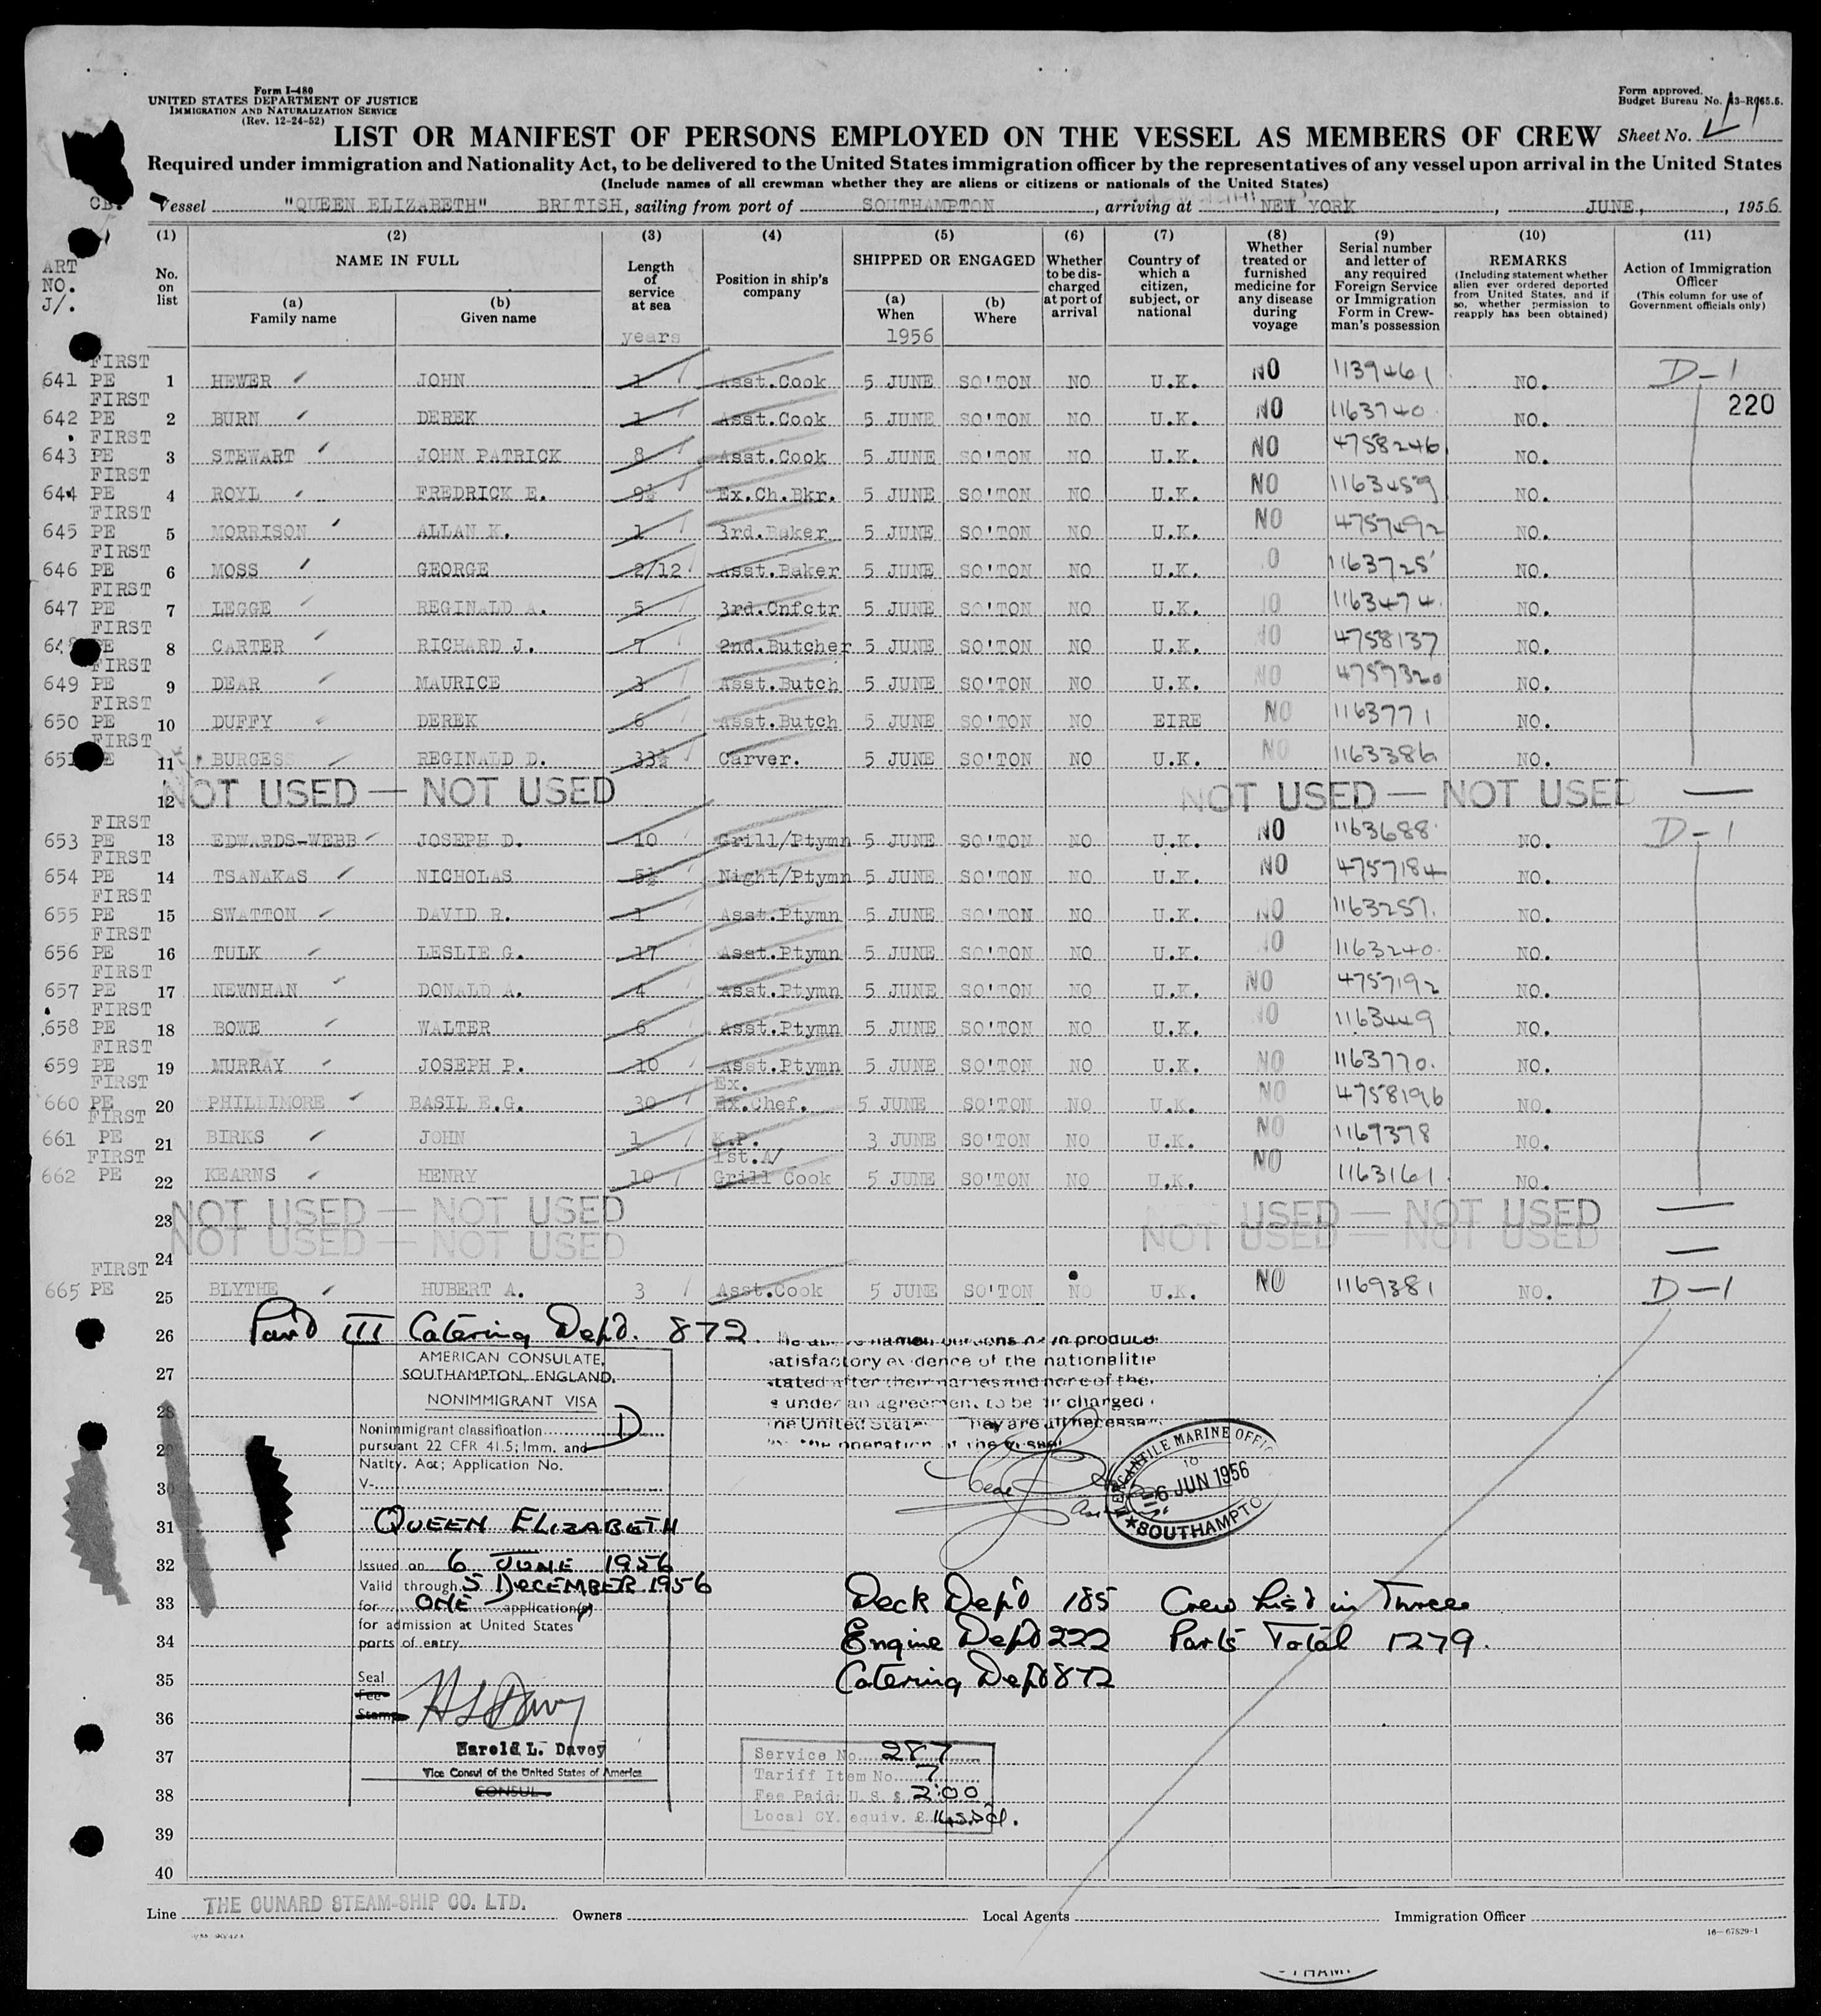 Form I-480
UNITED STATES DEPARTMENT OF JUSTICE
IMMIGRATION AND NATURALIZATION SERVICE
(Rev. 12-24-52)
Form approved.
Budget Bureau No. 43-R065.5.
LIST OR MANIFEST OF PERSONS EMPLOYED ON THE VESSEL AS MEMBERS OF CREW Sheet No.
Required under immigration and Nationality Act, to be delivered to the United States immigration officer by the representatives of any vessel upon arrival in the United States
(Include names of all crewman whether they are aliens or citizens or nationals of the United States)
Vessel "QUEEN ELIZABETH" BRITISH, sailing from port of SOUTHAMPTON, arriving at NEW YORK, JUNE, 1956
ART NO. J/.
(1) No. on list
(2) NAME IN FULL
(a) Family name
(b) Given name
(3) Length of service at sea years
(4) Position in ship's company
(5) SHIPPED OR ENGAGED
(a) When 1956
(b) Where
(6) Whether to be discharged at port of arrival
(7) Country of which a citizen, subject, or national
(8) Whether treated or furnished medicine for any disease during voyage
(9) Serial number and letter of any required Foreign Service or Immigration Form in Crewman's possession
(10) REMARKS (Including statement whether alien ever ordered deported from United States, and if so, whether permission to reapply has been obtained)
(11) Action of Immigration Officer (This column for use of Government officials only)
FIRST
641 PE 1 HEWER JOHN 1 Asst.Cook 5 JUNE SO'TON NO U.K. NO 1139461 NO. D-1
220
FIRST
642 PE 2 BURN DEREK 1 Asst.Cook 5 JUNE SO'TON NO U.K. NO 1163740 NO.
FIRST
643 PE 3 STEWART JOHN PATRICK 8 Asst.Cook 5 JUNE SO'TON NO U.K. NO 4758246 NO.
FIRST
644 PE 4 ROYL FREDRICK E. 9½ Ex.Ch.Bkr. 5 JUNE SO'TON NO U.K. NO 1163459 NO.
FIRST
645 PE 5 MORRISON ALLAN K. 1 3rd.Baker 5 JUNE SO'TON NO U.K. NO 4757492 NO.
FIRST
646 PE 6 MOSS GEORGE 2/12 Asst.Baker 5 JUNE SO'TON NO U.K. O 1163725 NO.
FIRST
647 PE 7 LEGGE REGINALD A. 5 3rd.Cnfctr 5 JUNE SO'TON NO U.K. NO 1163474 NO.
FIRST
648 PE 8 CARTER RICHARD J. 7 2nd.Butcher 5 JUNE SO'TON NO U.K. NO 4758137 NO.
FIRST
649 PE 9 DEAR MAURICE 3 Asst.Butch 5 JUNE SO'TON NO U.K. NO 4757320 NO.
FIRST
650 PE 10 DUFFY DEREK 6 Asst.Butch 5 JUNE SO'TON NO EIRE NO 1163771 NO.
FIRST
651 PE 11 BURGESS REGINALD D. 33½ Carver. 5 JUNE SO'TON NO U.K. NO 1163386 NO.
12 NOT USED — NOT USED NOT USED — NOT USED —
FIRST
653 PE 13 EDWARDS-WEBB JOSEPH D. 10 Grill/Ptymn 5 JUNE SO'TON NO U.K. NO 1163688 NO. D-1
FIRST
654 PE 14 TSANAKAS NICHOLAS 5½ Night/Ptymn 5 JUNE SO'TON NO U.K. NO 4757184 NO.
FIRST
655 PE 15 SWATTON DAVID R. 1 Asst.Ptymn 5 JUNE SO'TON NO U.K. NO 1163257 NO.
FIRST
656 PE 16 TULK LESLIE G. 17 Asst.Ptymn 5 JUNE SO'TON NO U.K. NO 1163240 NO.
FIRST
657 PE 17 NEWNHAN DONALD A. 4 Asst.Ptymn 5 JUNE SO'TON NO U.K. NO 4757192 NO.
FIRST
658 PE 18 BOWE WALTER 6 Asst.Ptymn 5 JUNE SO'TON NO U.K. NO 1163449 NO.
FIRST
659 PE 19 MURRAY JOSEPH P. 10 Asst.Ptymn 5 JUNE SO'TON NO U.K. NO 1163770 NO.
FIRST Ex.
660 PE 20 PHILLIMORE BASIL E.G. 30 Ex.Chef. 5 JUNE SO'TON NO U.K. NO 4758196 NO.
FIRST
661 PE 21 BIRKS JOHN 1 K.P. 3 JUNE SO'TON NO U.K. NO 1169378 NO.
FIRST 1st.A/
662 PE 22 KEARNS HENRY 10 Grill Cook 5 JUNE SO'TON NO U.K. NO 1163161 NO.
23 NOT USED — NOT USED USED — NOT USED —
24 NOT USED — NOT USED NOT USED — NOT USED —
FIRST
665 PE 25 BLYTHE HUBERT A. 3 Asst.Cook 5 JUNE SO'TON NO U.K. NO 1169381 NO. D-1
26 Part III Catering Dept. 872.
27
28
29
30
31
32
33
34
35
36
37
38
39
40
AMERICAN CONSULATE,
SOUTHAMPTON, ENGLAND.
NONIMMIGRANT VISA
Nonimmigrant classification D
pursuant 22 CFR 41.5; Imm. and
Natlty. Act; Application No.
V-
QUEEN ELIZABETH
Issued on 6 JUNE 1956
Valid through 5 DECEMBER 1956
for ONE application(s)
for admission at United States
ports of entry.
Seal
Fee
Stamp
Harold L. Davey
Vice Consul of the United States of America
CONSUL
atisfactory evidence of the nationalitie
stated after their names and none of the
under an agreement to be discharged
the United State They are all necessary
the operation of the vessel
MERCANTILE MARINE OFFIC
6 JUN 1956
SOUTHAMPTO
Deck Dept 185 Crew List in Three
Engine Dept 222 Parts Total 1279.
Catering Dept 872
Service No. 287
Tariff Item No. 7
Fee Paid: U.S. $ 2.00
Local CY. equiv. £
Line THE CUNARD STEAM-SHIP CO. LTD. Owners Local Agents Immigration Officer
16—67529-1